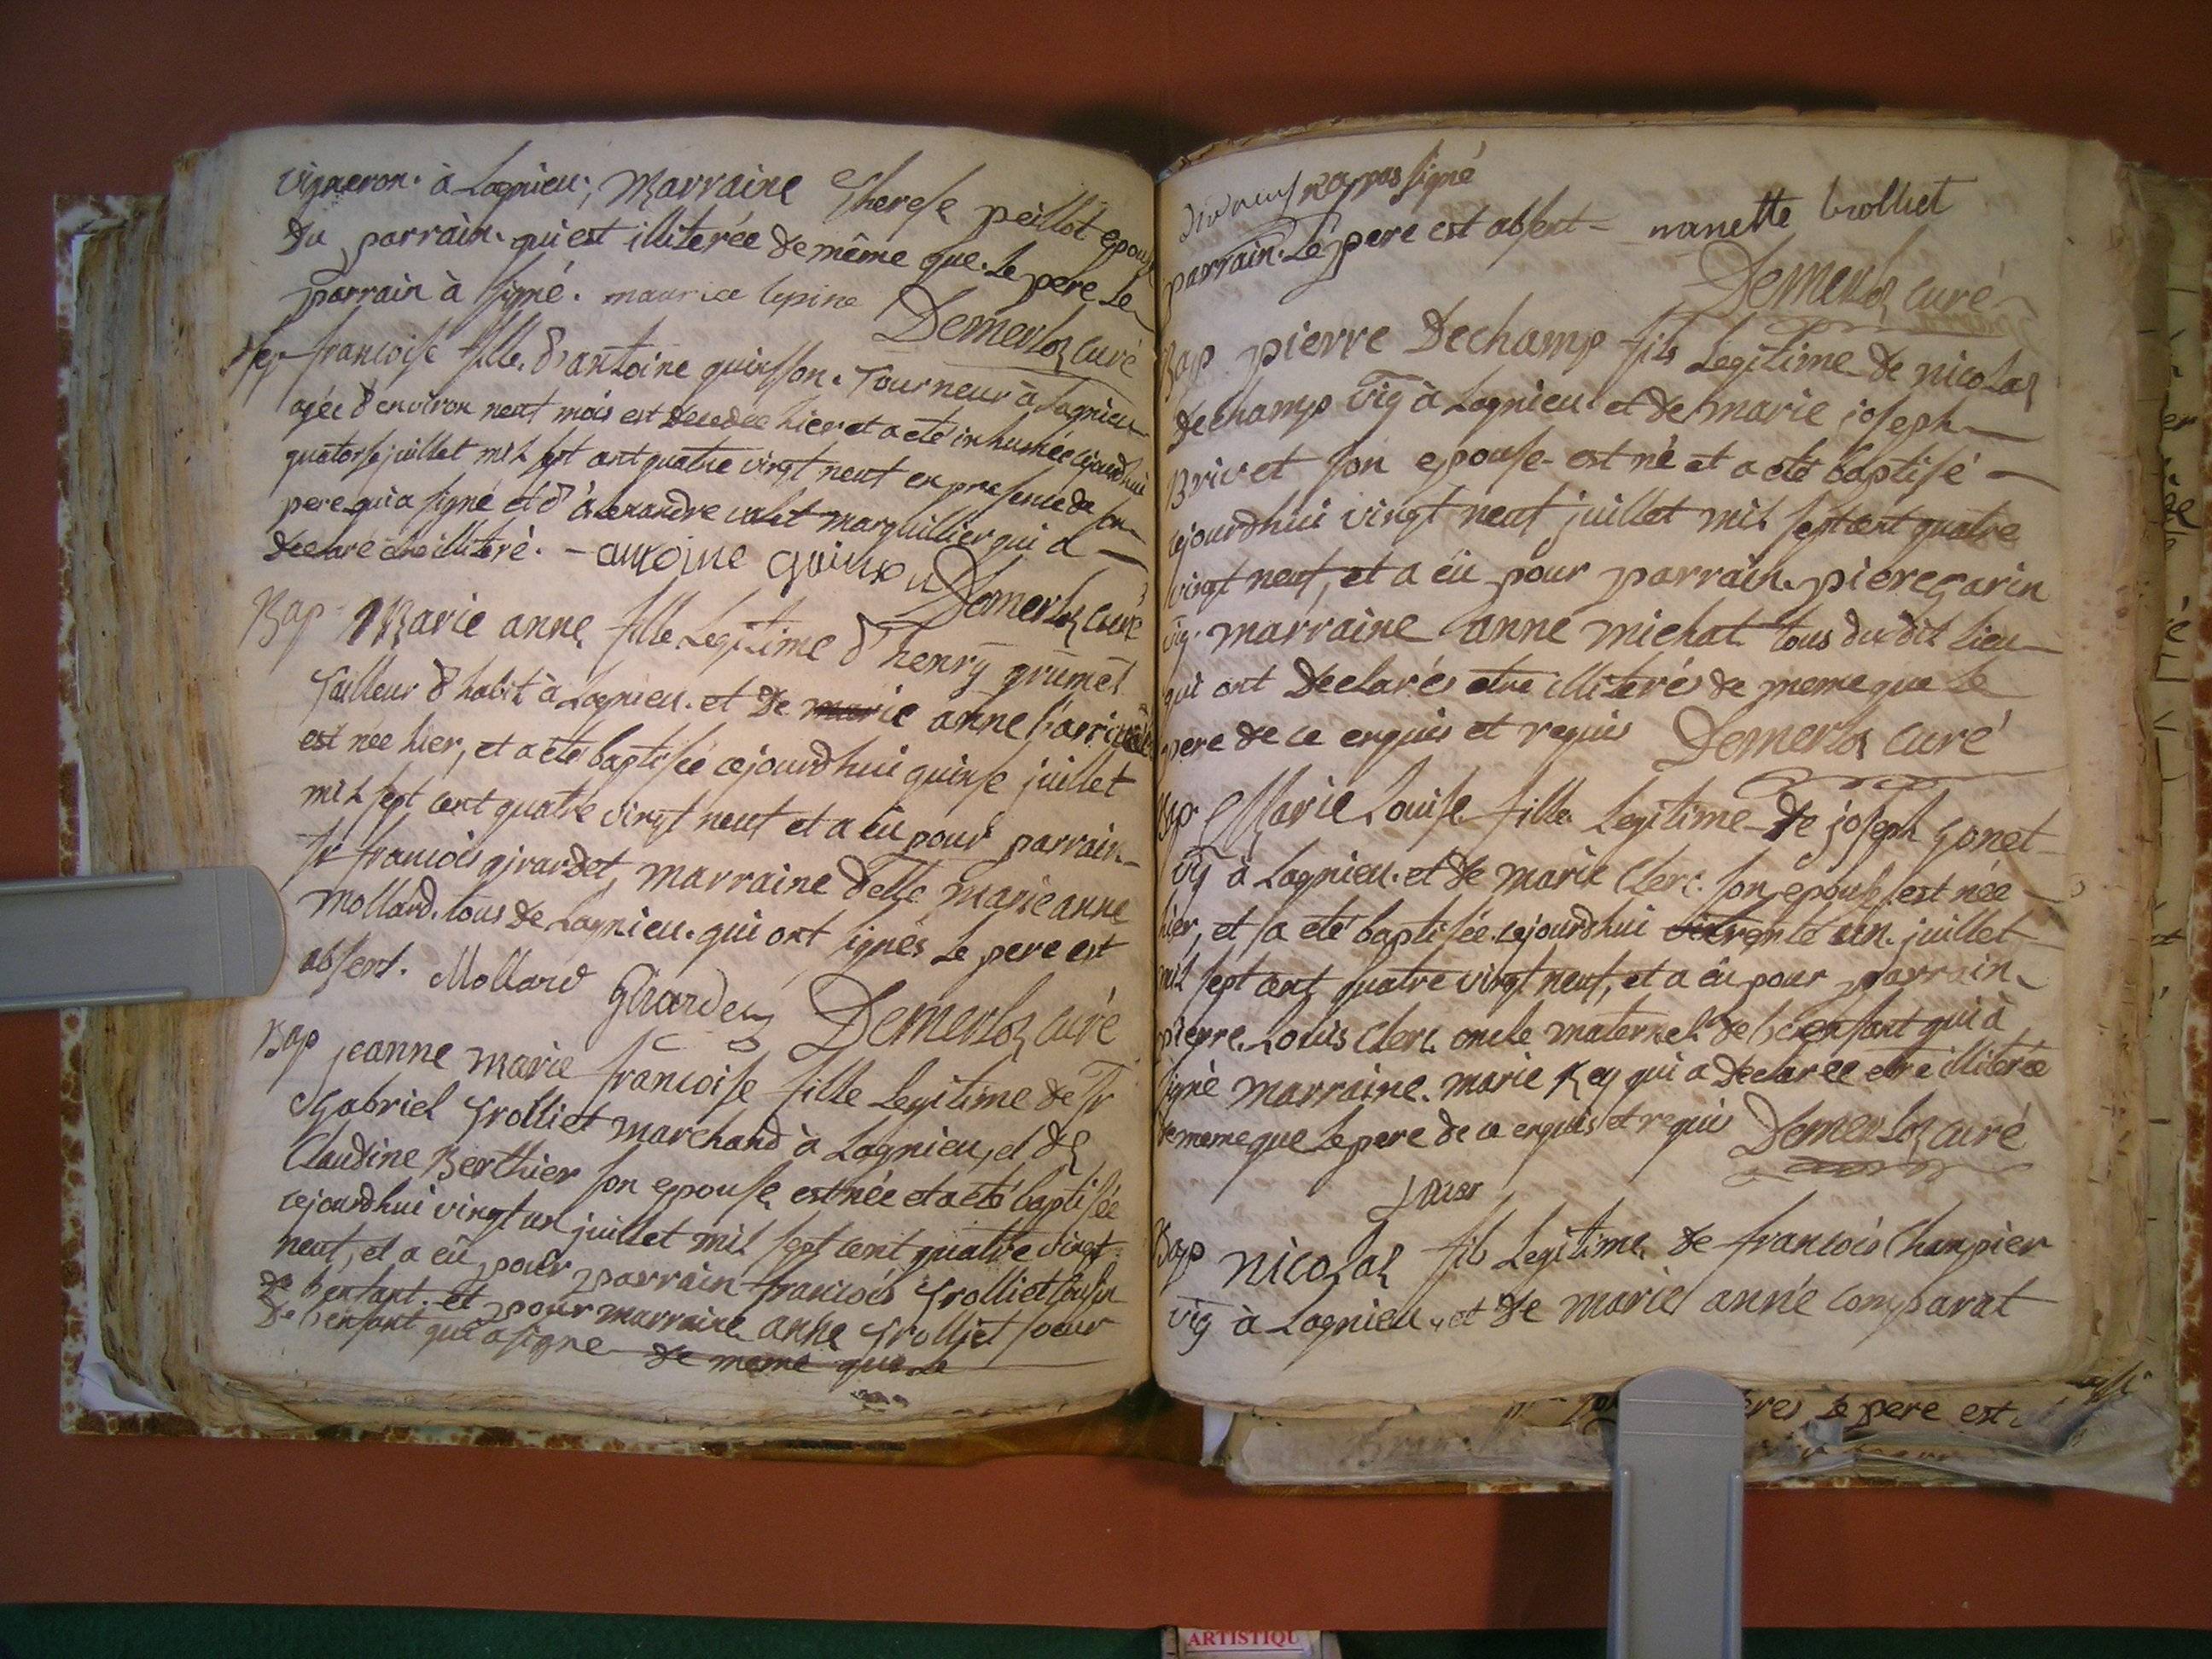 vigneron à Lagnieu, Marraine Therese peillot epouse
du parrain qui est illiterée de même que le pere le
parrain à signé. maurice lepine Demerloz curé
francoise fille d'antoine quinsson tourneur à Lagnieu
agée d'environ neuf mois est decedée hier et a eté inhumée cejourdhui
quatorse juillet mil sept cent quatre vingt neuf en presence de son
pere qui a signé et d'alexandre valet marguillier qui a
declaré etre illiteré. - antoine Demerloz curé
Bap Marie anne fille legitime d'henry grumet
Tailleur d'habit à Lagnieu et de marie anne
est née hier, et a eté baptisée cejourdhui quinse juillet
mil sept cent quatre vingt neuf et a eu pour parrain
sr francois girardet, marraine delle marie anne
Mollard tous de Lagnieu qui ont signés le pere est
absent. Mollard Girardet Demerloz curé
Bap jeanne marie francoise fille Legitime de Sr
Gabriel Trolliet marchand à Lagnieu, et de
Claudine Berthier son epouse est née et a eté baptisée
cejourdhui vingt un juillet mil sept cent quatre vingt
neuf, et a eû pour parrain francois Trolliet cousin
de l'enfant et pour marraine anne Trolliet soeur
de l'enfant qui a signé de meme que le
n'a pas signé
parrain. Le pere est absent - nanette trolliet
Demerloz curé
Bap pierre Dechamp fils Legitime de nicolas
dechamp vig à Lagnieu et de marie joseph
Brivet son epouse est né et a eté baptisé
cejourdhui vingt neuf juillet mil sept cent quatre
vingt neuf, et a eü pour parrain piere garin
vig. marraine anne michat tous dudit lieu
qui ont declarés etre illiterés de meme que le
pere de ce enquis et requis Demerloz curé
Bap Marie Louise fille Legitime de joseph gonet
vig à Lagnieu et de marie Clerc son epouse est née
hier, et a eté baptisée cejourdhui trente un juillet
mil sept cent quatre vingt neuf, et a eu pour parrain
pierre Louis Clerc oncle maternel de l'enfant qui à
signé marraine marie Rey qui a declarée etre illiterée
de meme que le pere de ce enquis et requis Demerloz curé
Bap nicolas fils Legitime de francois Champier
vig à Lagnieu, et de marie anne comparat
le pere est
ARTISTIQU